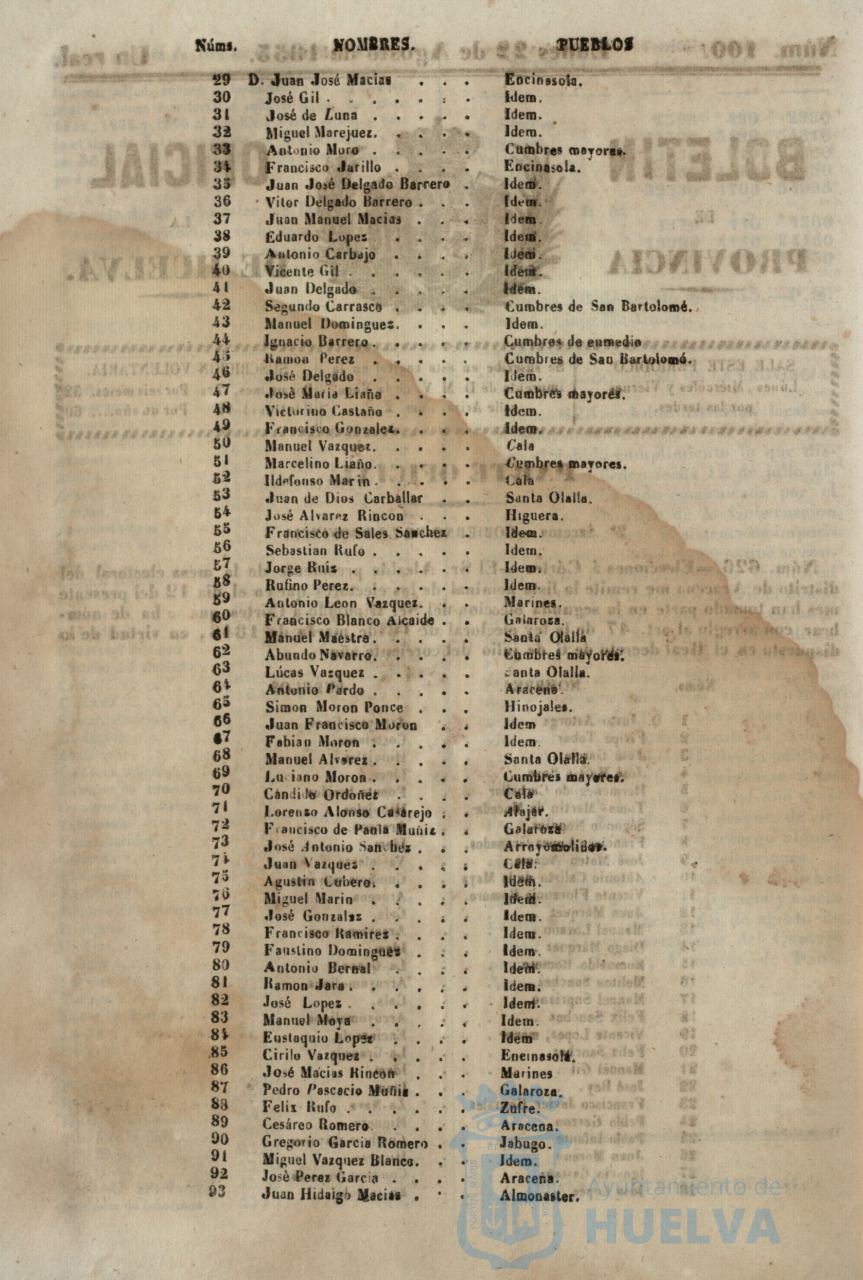 Núms. NOMBRES. PUEBLOS
29 D. Juan José Macias . . . Encinasola.
30 José Gil . . . . . . . Idem.
31 José de Luna . . . . . Idem.
32 Miguel Marejuez. . . . . Idem.
33 Antonio Moro . . . . . Cumbres mayores.
34 Francisco Jarillo . . . . Encinasola.
35 Juan José Delgado Barrero . Idem.
36 Vitor Delgado Barrero . . . Idem.
37 Juan Manuel Macias . . . Idem.
38 Eduardo Lopez . . . . Idem.
39 Antonio Carbajo . . . . Idem.
40 Vicente Gil . . . . . . Idem.
41 Juan Delgado . . . . . Idem.
42 Segundo Carrasco . . . . Cumbres de San Bartolomé.
43 Manuel Dominguez. . . . Idem.
44 Ignacio Barrero . . . . . Cumbres de enmedio
45 Ramon Perez . . . . . Cumbres de San Bartolomé.
46 José Delgado . . . . . Idem.
47 José Maria Liaño . . . . Cumbres mayores.
48 Victorino Castaño . . . . Idem.
49 Francisco Gonzalez. . . . Idem.
50 Manuel Vazquez. . . . . Cala
51 Marcelino Liaño. . . . . Cumbres mayores.
52 Ildefonso Marin . . . . . Cala
53 Juan de Dios Carballar . . Santa Olalla.
54 José Alvarez Rincon . . . Higuera.
55 Francisco de Sales Sanchez . Idem.
56 Sebastian Rufo . . . . . Idem.
57 Jorge Ruiz . . . . . . Idem.
58 Rufino Perez. . . . . . Idem.
59 Antonio Leon Vazquez. . . Marines.
60 Francisco Blanco Alcaide . . Galaroza.
61 Manuel Maestre. . . . . Santa Olalla
62 Abundo Navarro. . . . . Cumbres mayores.
63 Lúcas Vazquez . . . . . Santa Olalla.
64 Antonio Pardo . . . . . Aracena.
65 Simon Moron Ponce . . . Hinojales.
66 Juan Francisco Moron . . Idem
67 Fabian Moron . . . . . Idem
68 Manuel Alvarez . . . . . Santa Olalla.
69 Luciano Moron . . . . . Cumbres mayores.
70 Candido Ordoñez . . . . Cala
71 Lorenzo Alonso Casarejo . . Alajar.
72 Francisco de Paula Muñiz . . Galaroza
73 José Antonio Sanchez . . . Arroyomolinos.
74 Juan Vazquez . . . . . Cala.
75 Agustin Cubero. . . . . Idem.
76 Miguel Marin . . . . . Idem.
77 José Gonzalez . . . . . Idem.
78 Francisco Ramirez . . . . Idem.
79 Faustino Dominguez . . . Idem.
80 Antonio Bernal . . . . Idem.
81 Ramon Jara . . . . . . Idem.
82 José Lopez . . . . . . Idem.
83 Manuel Moya . . . . . Idem.
84 Eustaquio Lopez . . . . Idem
85 Cirilo Vazquez . . . . . Encinasola.
86 José Macias Rincon . . . Marines
87 Pedro Pascacio Muñiz . . . Galaroza.
88 Felix Rufo . . . . . . Zufre.
89 Cesáreo Romero . . . . Aracena.
90 Gregorio Garcia Romero . . Jabugo.
91 Miguel Vazquez Blanco. . . Idem.
92 José Perez Garcia . . . . Aracena.
93 Juan Hidalgo Macias . . . Almonaster.
Ayuntamiento de
HUELVA